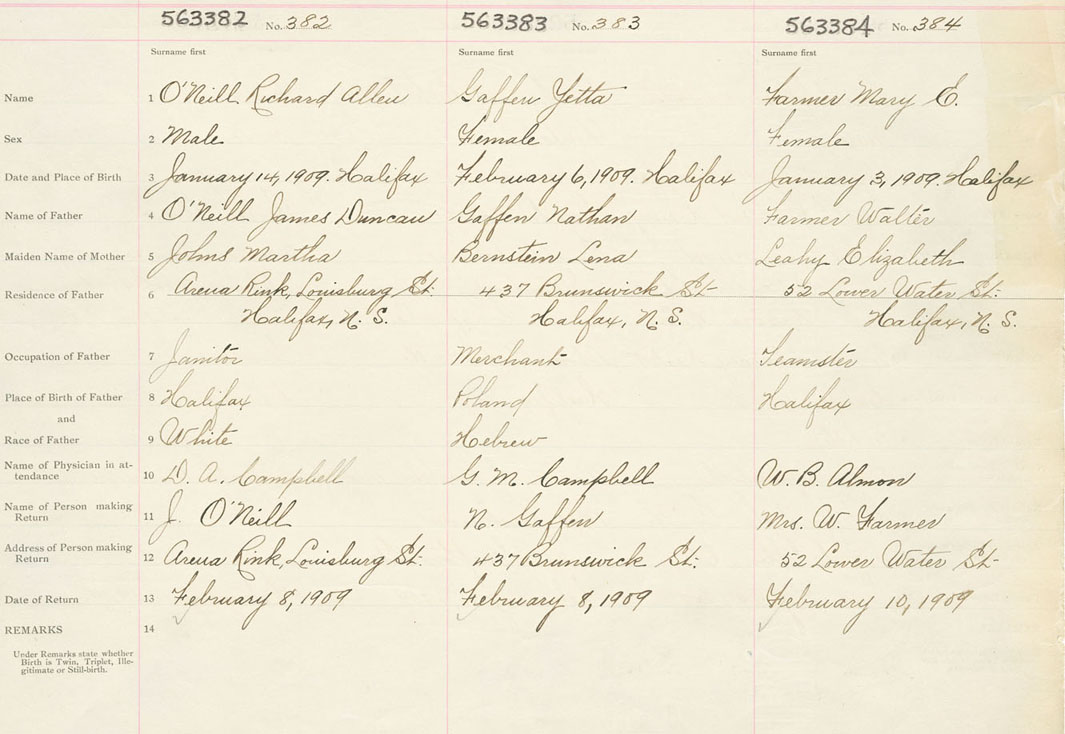 563382 No. 382 563383 No. 383 563384 No. 384
Surname first Surname first Surname first
Name 1 O'Neill Richard Allen Gaffen Yetta Farmer Mary E.
Sex 2 Male Female Female
Date and Place of Birth 3 January 14, 1909. Halifax February 6, 1909. Halifax January 3, 1909. Halifax
Name of Father 4 O'Neill James Duncan Gaffen Nathan Farmer Walter
Maiden Name of Mother 5 Johns Martha Bernstein Lena Leahy Elizabeth
Residence of Father 6 Arena Rink, Louisburg St. 437 Brunswick St. 52 Lower Water St.
Halifax, N. S. Halifax, N. S. Halifax, N. S.
Occupation of Father 7 Janitor Merchant Teamster
Place of Birth of Father 8 Halifax Poland Halifax
and
Race of Father 9 White Hebrew
Name of Physician in at-
tendance 10 D. A. Campbell G. M. Campbell W. B. Almon
Name of Person making
Return 11 J. O'Neill N. Gaffen Mrs. W. Farmer
Address of Person making
Return 12 Arena Rink, Louisburg St. 437 Brunswick St. 52 Lower Water St.
Date of Return 13 February 8, 1909 February 8, 1909 February 10, 1909
REMARKS 14
Under Remarks state whether
Birth is Twin, Triplet, Ille-
gitimate or Still-birth.